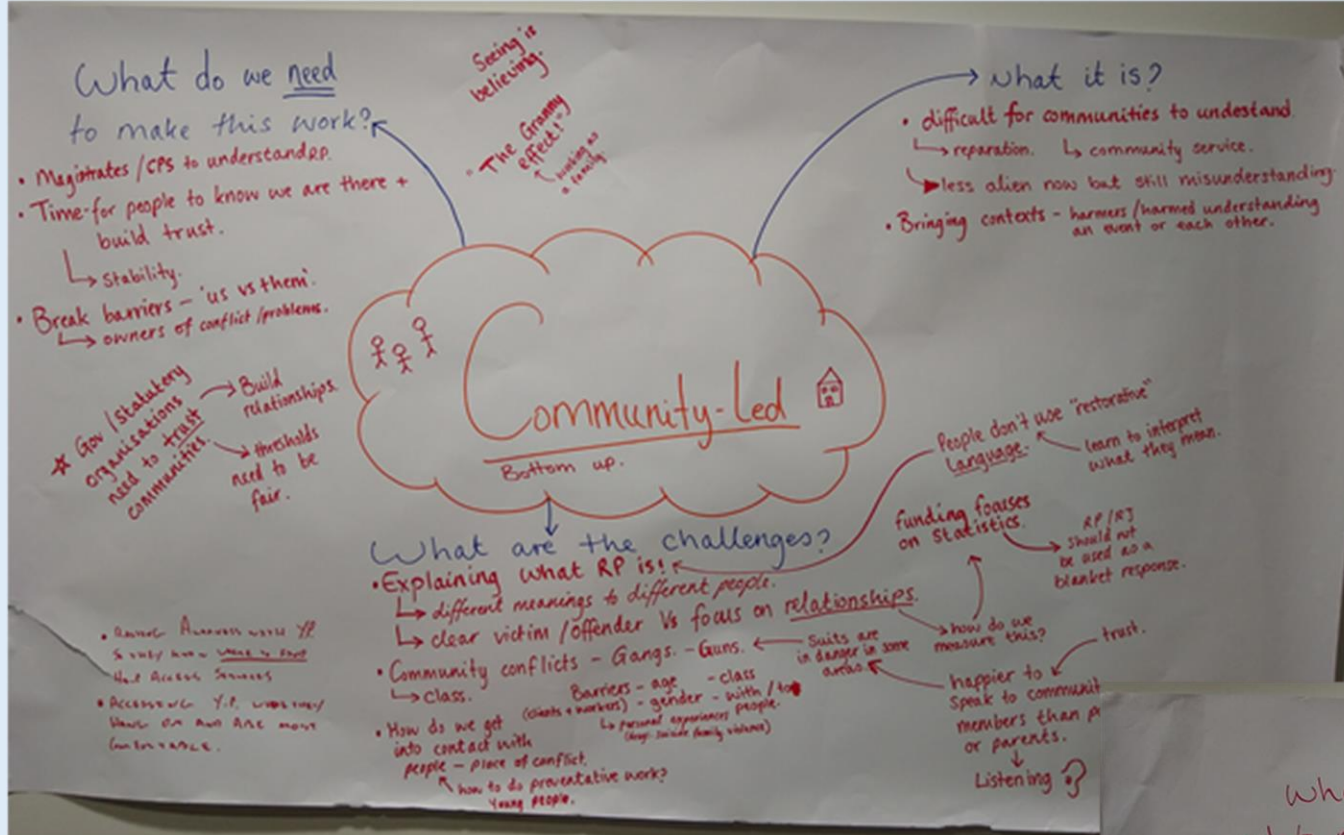 What do we need
to make this work?
• Magistrates/CPS to understand RP.
• Time-for people to know we are there +
build trust.
↳ Stability.
• Break barriers - 'us vs them'.
↳ owners of conflict/problems.
☆ Gov/Statutory
organisations
need to trust
communities.
→ Build
relationships.
→ thresholds
need to be
fair.
Seeing is
believing.
"The Granny
effect!"
working as
a family.
What it is?
• difficult for communities to undestand.
↳ reparation. ↳ community service.
↳ less alien now but still misunderstanding.
• Bringing contexts - harmers/harmed understanding
an event or each other.
Community-Led
Bottom up.
What are the challenges?
• Explaining what RP is!
↳ different meanings to different people.
↳ clear victim/offender Vs focus on relationships.
• Community conflicts - Gangs. - Guns.
↳ Class.
Suits are
in danger in some
areas.
Barriers - age - class
(clients + workers) - gender - with/to
↳ personal experiences people.
(drugs suicide family violence)
• How do we get
into contact with
people - place of conflict.
how to do preventative work?
Young people.
People don't use "restorative"
Language.
learn to interpret
what they mean.
funding focuses
on Statistics.
RP/RJ
should not
be used as a
blanket response.
how do we
measure this?
trust.
happier to
Speak to communit
members than
or parents.
Listening?
•
Access Services
• Accessing Y.P. where they
hang on and are most
comfortable.